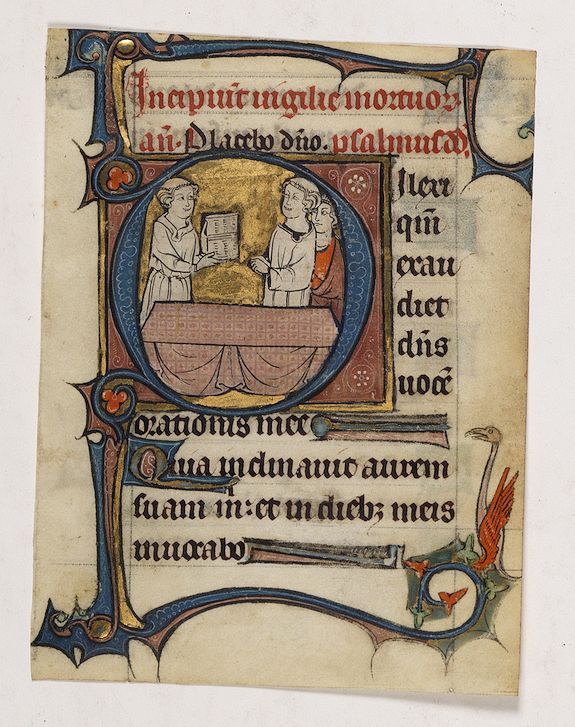 Incipiūt uigilie mortuoꝝ
an̄. Placebo dn̄o. psalmus dd.
Dilexi
qm̄
exau
diet
dn̄s
uocē
orationis mee
Quia inclinauit aurem
suam m̄: et in diebꝫ meis
inuocabo